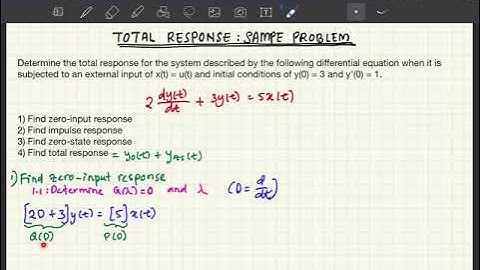 TOTAL RESPONSE : SAMPE PROBLEM
Determine the total response for the system described by the following differential equation when it is
subjected to an external input of x(t) = u(t) and initial conditions of y(0) = 3 and y'(0) = 1.
2 dy(t)/dt + 3y(t) = 5x(t)
1) Find zero-input response
2) Find impulse response
3) Find zero-state response
4) Find total response = y₀(t) + yzs(t)
1) Find zero-input response
1.1: Determine Q(λ)=0 and λ (D = d/dt)
[2D + 3]y(t) = [5]x(t)
Q(D) P(D)